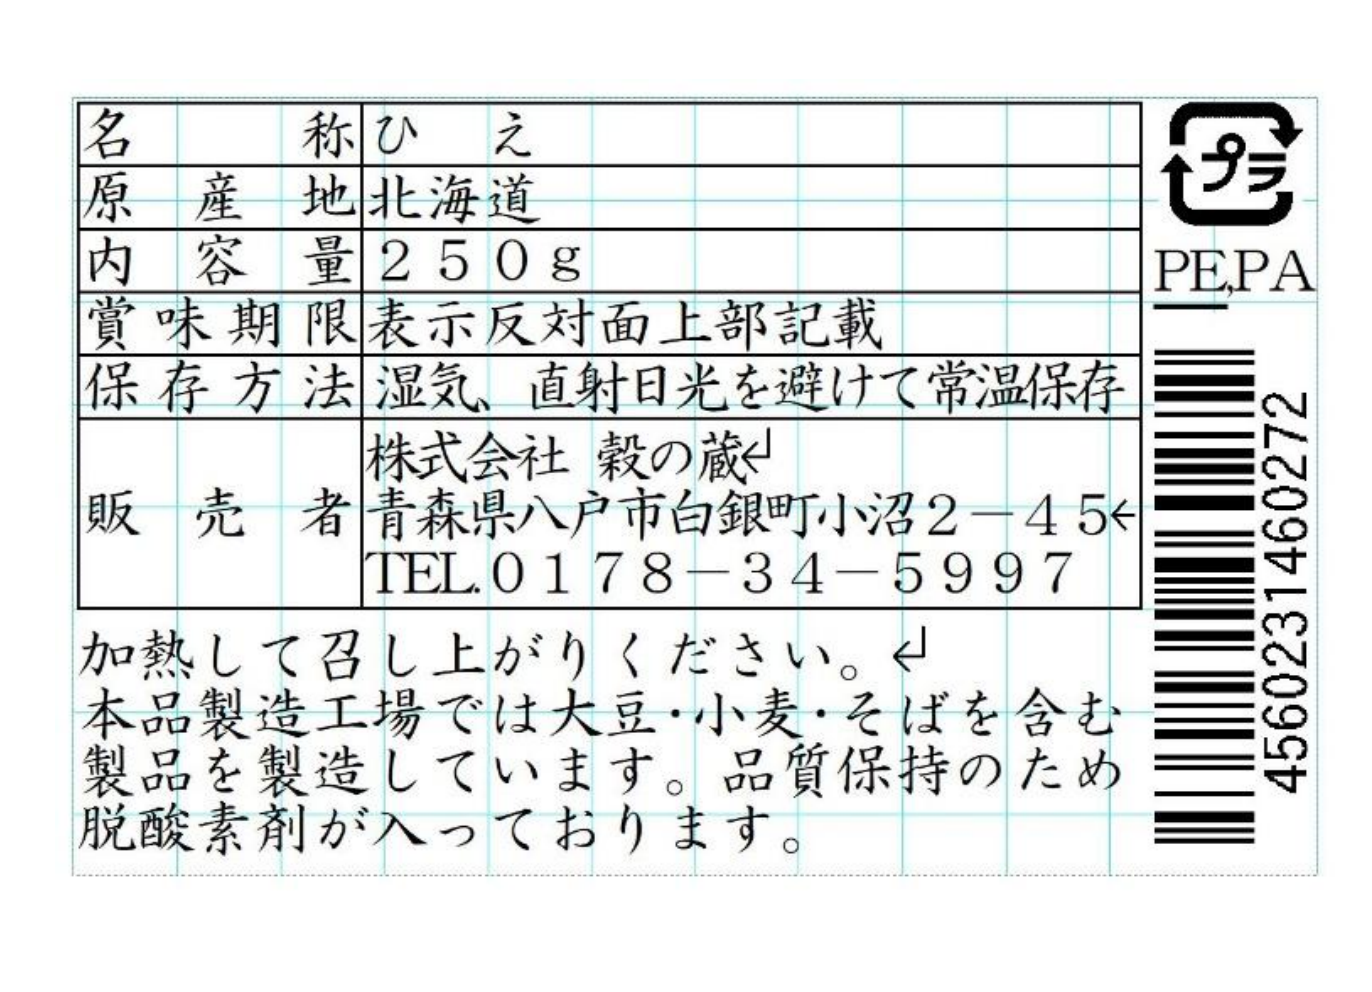 名称 ひえ
原産地 北海道
内容量 250g
賞味期限 表示反対面上部記載
保存方法 湿気、直射日光を避けて常温保存
販売者 株式会社 穀の蔵↵
青森県八戸市白銀町小沼2-45←
TEL.0178-34-5997
加熱して召し上がりください。↵
本品製造工場では大豆・小麦・そばを含む
製品を製造しています。品質保持のため
脱酸素剤が入っております。
プラ
PE,PA
4560231460272